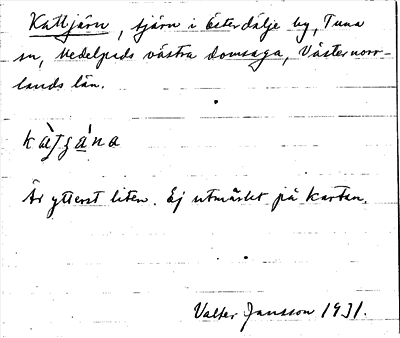 Kattjärn, tjärn i Österdälje by, Tuna
sn, Medelpads västra domsaga, Västernorr-
lands län.
kàtʒána
Är ytterst liten. Ej utmärkt på kartan.
Valter Jansson 1931.